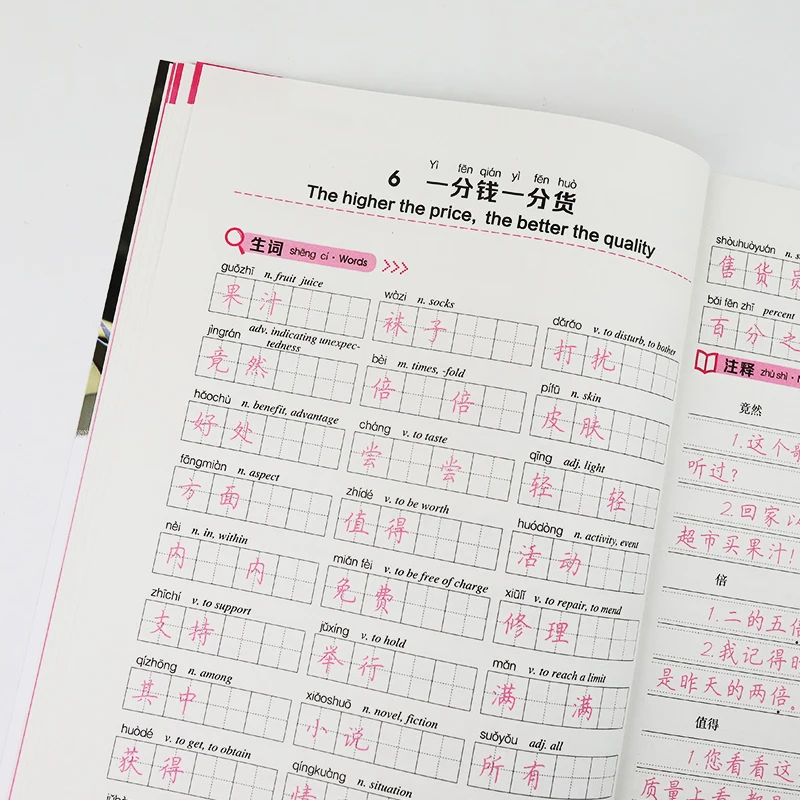 Yì fēn qián yì fēn huò
6 一分钱一分货
The higher the price, the better the quality
生词 shēng cí · Words
guǒzhī n. fruit juice
果汁
jìngrán adv. indicating unexpec-
tedness
竟然
hǎochù n. benefit, advantage
好处
fāngmiàn n. aspect
方面
nèi n. in, within
内 内
zhīchí v. to support
支持
qízhōng n. among
其中
huòdé v. to get, to obtain
获得
wàzi n. socks
袜子
bèi m. times, -fold
倍 倍
cháng v. to taste
尝 尝
zhídé v. to be worth
值得
miǎn fèi v. to be free of charge
免费
jǔxíng v. to hold
举行
xiǎoshuō n. novel, fiction
小说
qíngkuàng n. situation
情
dǎrǎo v. to disturb, to bother
打扰
pífū n. skin
皮肤
qīng adj. light
轻 轻
huódòng n. activity, event
活动
xiūlǐ v. to repair, to mend
修理
mǎn v. to reach a limit
满 满
suǒyǒu adj. all
所有
shòuhuòyuán n. s
售货员
bǎi fēn zhī percent
百分之
注释 zhù shì ·
竟然
1.这个歌
听过？
2.回家以
超市买果汁！
倍
1.二的五倍
2.我记得昨
是昨天的两倍。
值得
1.您看看这
质量上看，都是